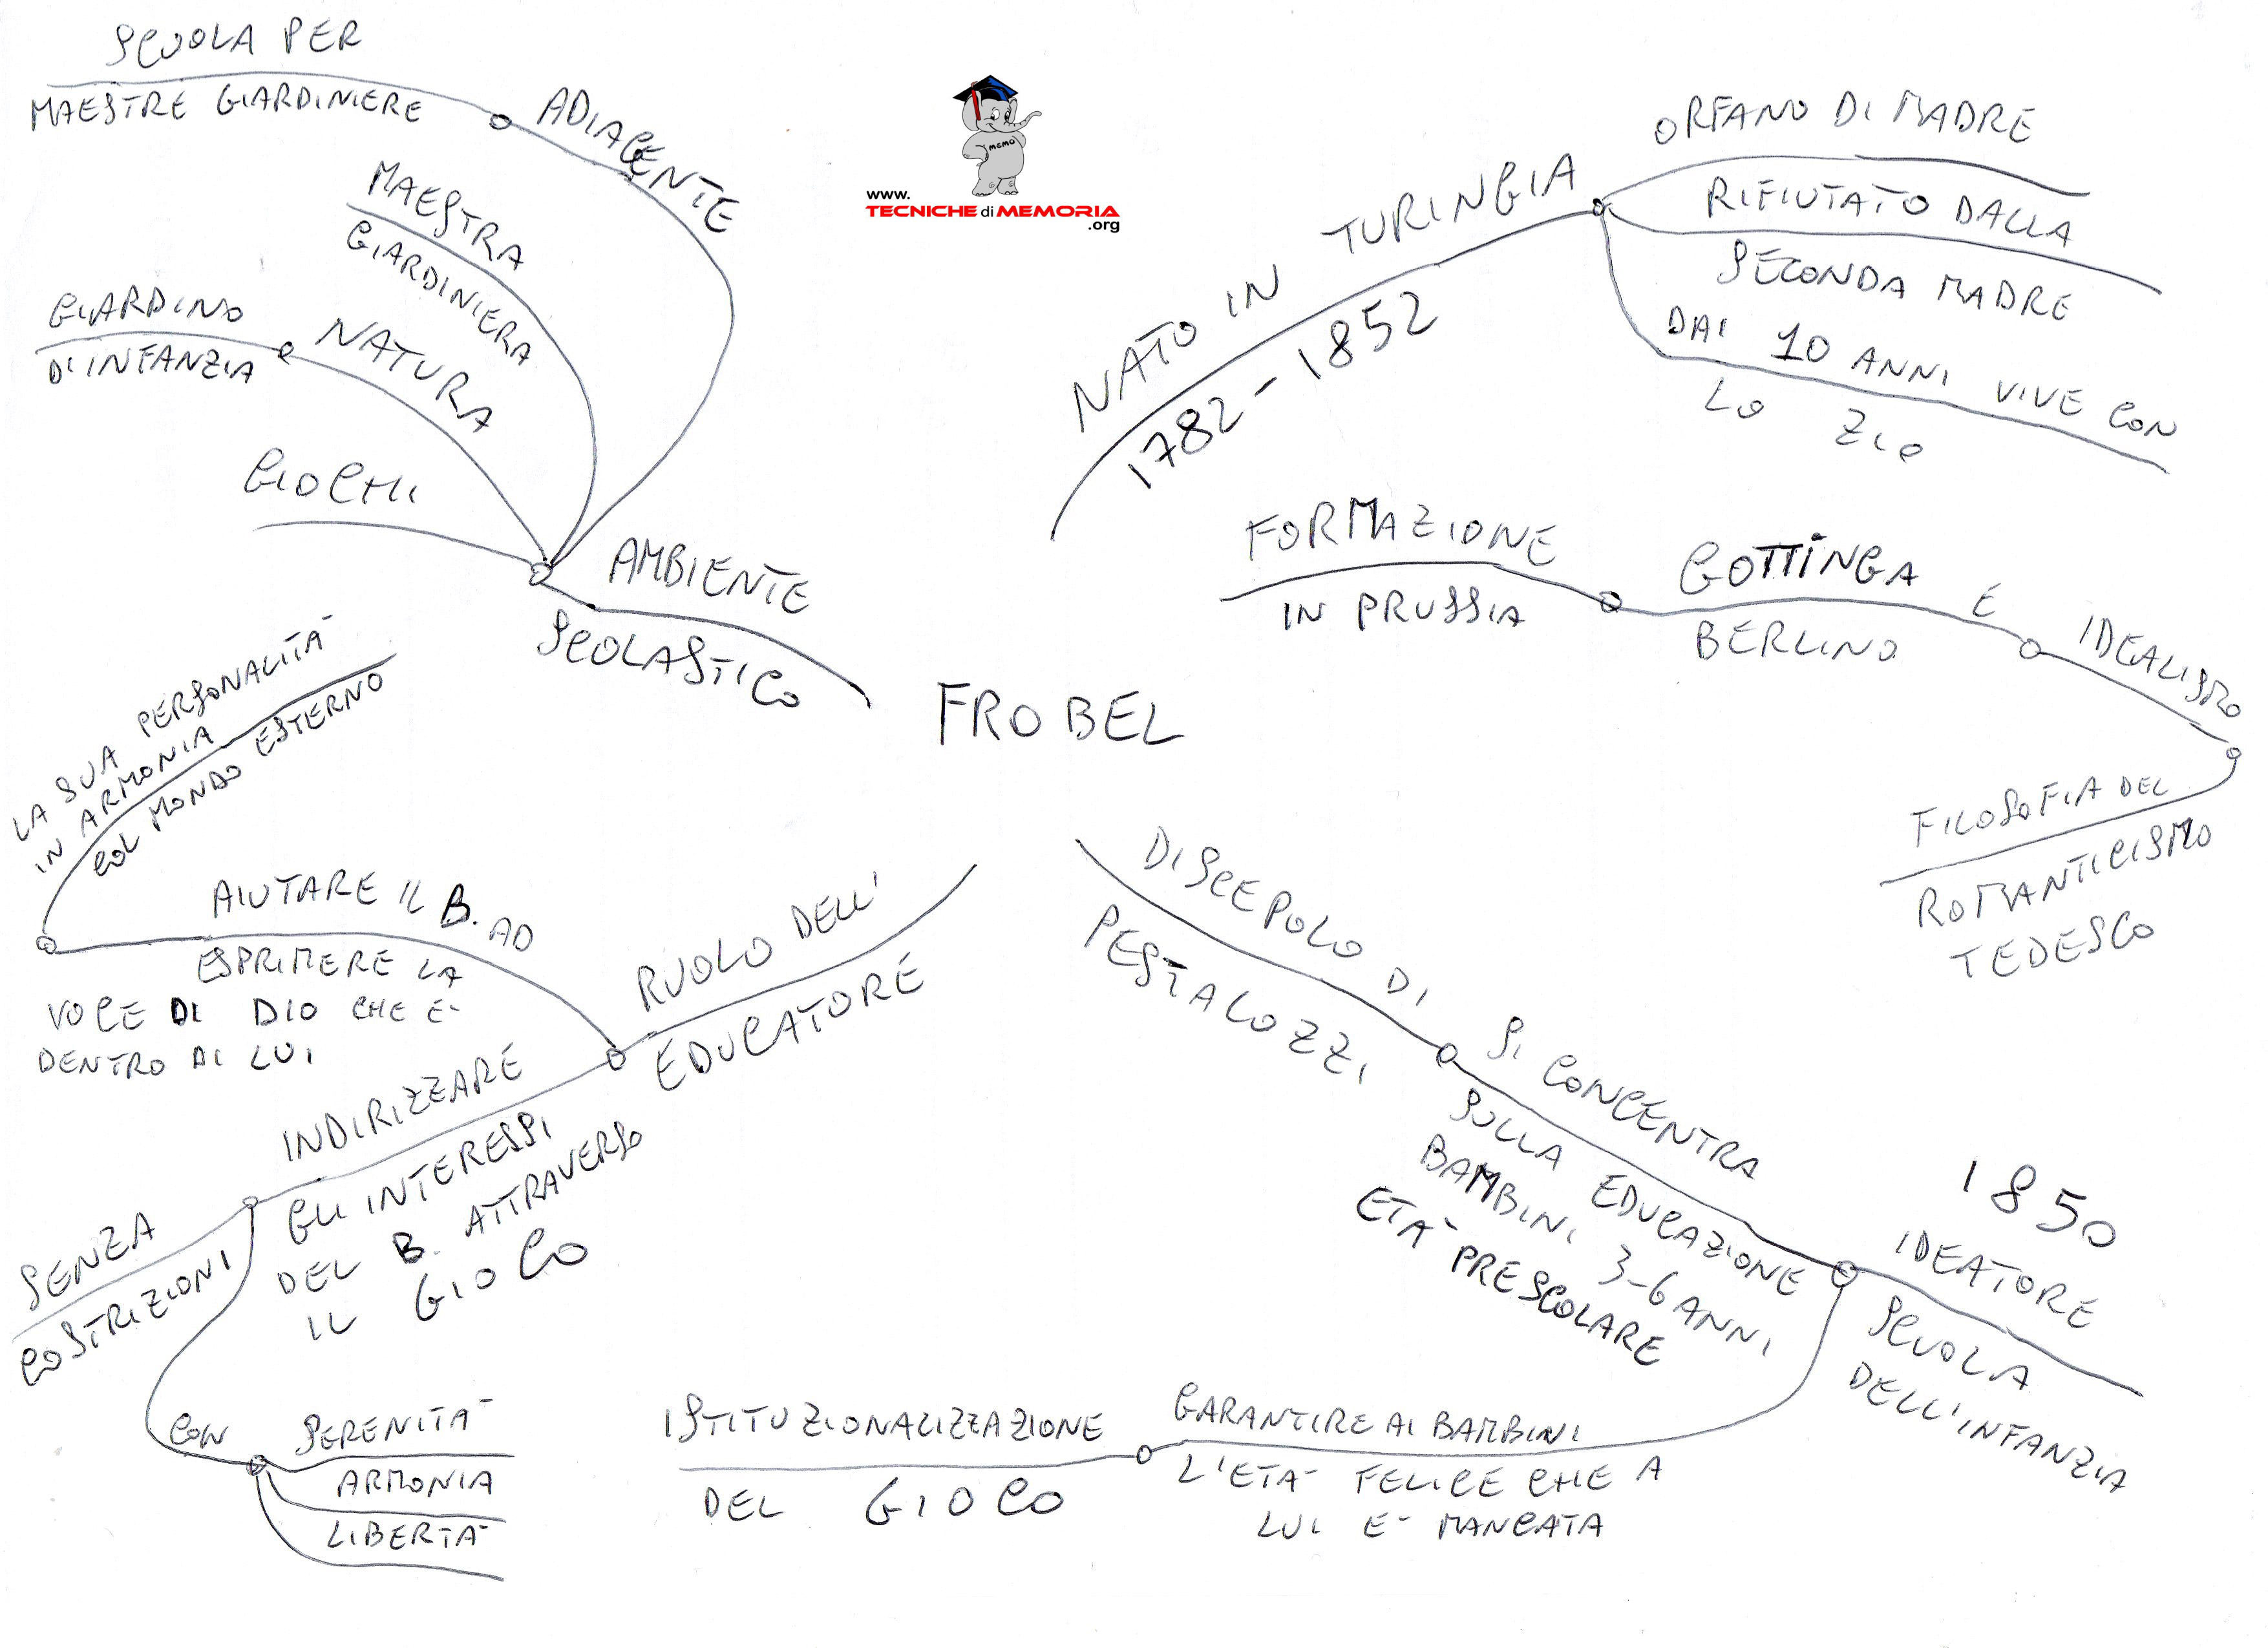 SCUOLA PER
MAESTRE GIARDINIERE
ADIACENTE
MAESTRA
GIARDINIERA
GIARDINO
DI INFANZIA
NATURA
GIOCHI
AMBIENTE
SCOLASTICO
MEMO
www.
TECNICHE di MEMORIA
.org
NATO IN TURINGIA
1782-1852
ORFANO DI MADRE
RIFIUTATO DALLA
SECONDA MADRE
DAI 10 ANNI VIVE CON
LO ZIO
FORMAZIONE
IN PRUSSIA
GOTTINGA E
BERLINO
IDEALISMO
FILOSOFIA DEL
ROMANTICISMO
TEDESCO
FROBEL
LA SUA PERSONALITA'
IN ARMONIA
COL MONDO ESTERNO
AIUTARE IL B. AD
ESPRIMERE LA
VOCE DI DIO CHE E'
DENTRO DI LUI
RUOLO DELL'
EDUCATORE
INDIRIZZARE
GLI INTERESSI
DEL B. ATTRAVERSO
IL GIOCO
SENZA
COSTRIZIONI
CON
SERENITA'
ARMONIA
LIBERTA'
DISCEPOLO DI
PESTALOZZI
SI CONCENTRA
SULLA EDUCAZIONE
BAMBINI 3-6 ANNI
ETA' PRESCOLARE
1850
IDEATORE
SCUOLA
DELL'INFANZIA
GARANTIRE AI BAMBINI
L'ETA' FELICE CHE A
LUI E' MANCATA
ISTITUZIONALIZZAZIONE
DEL GIOCO